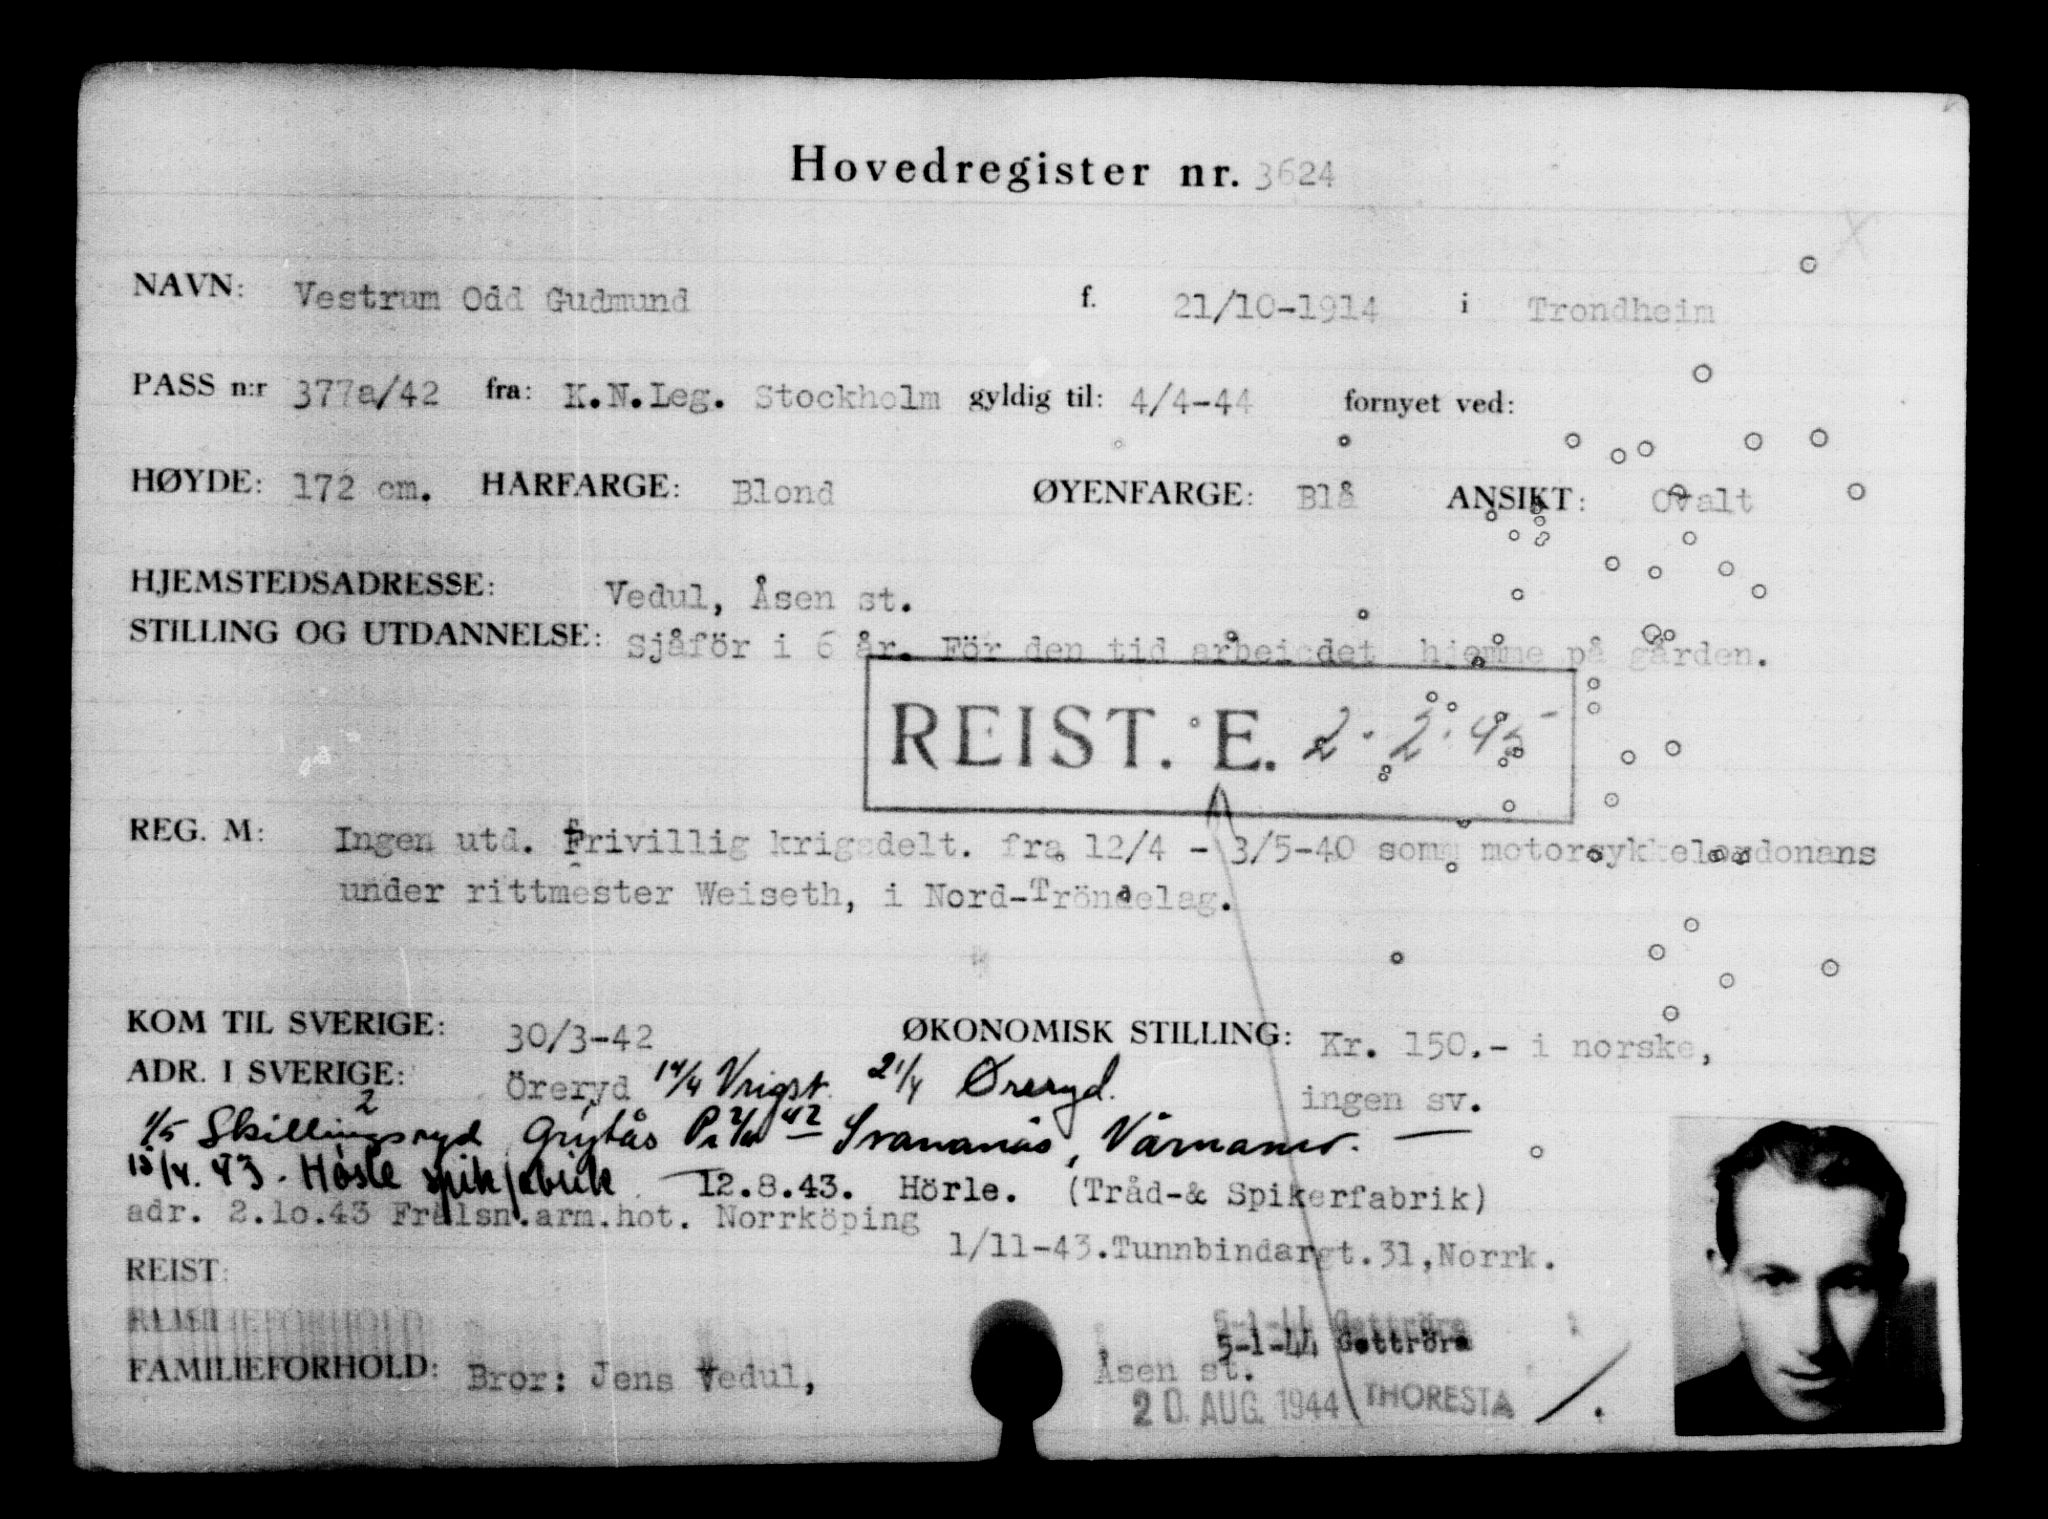 Hovedregister nr. 3624
NAVN: Vestrum Odd Gudmund f. 21/10-1914 i Trondheim
PASS n:r 377a/42 fra: K.N.Leg. Stockholm gyldig til: 4/4-44 fornyet ved:
HØYDE: 172 cm. HÅRFARGE: Blond ØYENFARGE: Blå ANSIKT: Ovalt
HJEMSTEDSADRESSE: Vedul, Åsen st.
STILLING OG UTDANNELSE: Sjåför i 6 år. För den tid arbeidet hjemme på gården.
REIST. E. 2.2.45
REG. M: Ingen utd. Frivillig krigsdelt. fra 12/4 - 3/5-40 som motorsykkelordonans
under rittmester Weiseth, i Nord-Tröndelag.
KOM TIL SVERIGE: 30/3-42 ØKONOMISK STILLING: Kr. 150.- i norske,
ADR. I SVERIGE: Öreryd 14/4 Vrigst. 21/4 Øreryd. ingen sv.
1/5 Skillingsryd 42 Svananäs, Värnamo. —
15/4. 43. spikfabrik 12.8.43. Hörle. (Tråd-& Spikerfabrik)
adr. 2.10.43 Frälsn.arm.hot. Norrköping
1/11-43.Tunnbindargt.31,Norrk.
REIST:
5-1-44 Gottröra
FAMILIEFORHOLD: Bror: Jens Vedul, Åsen st.
20. AUG. 1944 THORESTA